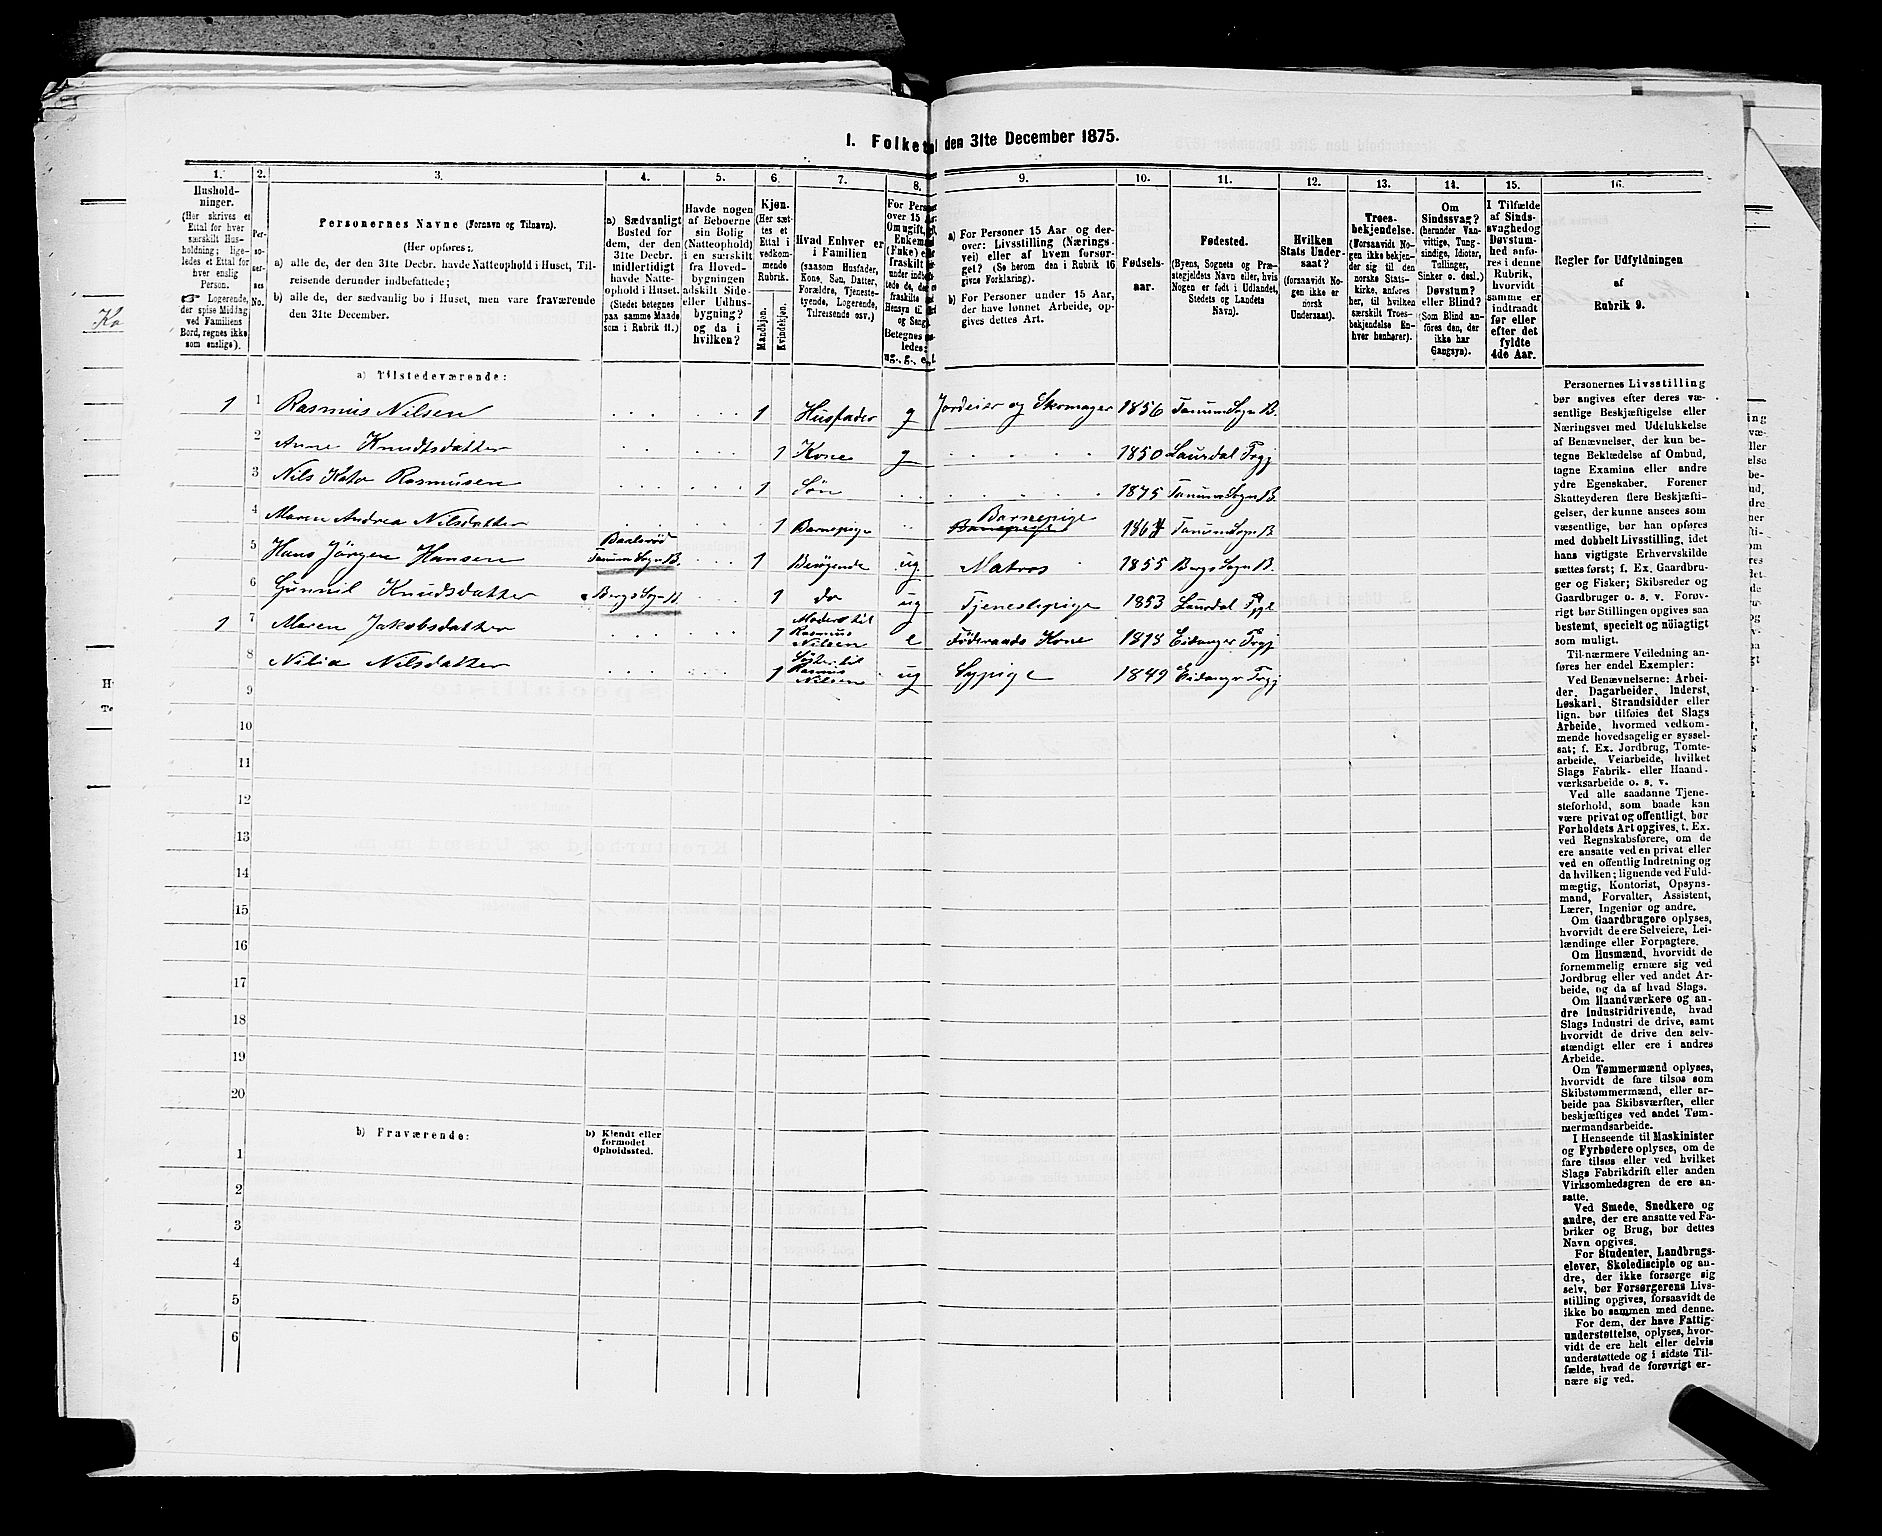 1. Folketal den 31te December 1875.
1. 2. 3. 4. 5. 6. 7. 8. 9. 10. 11. 12. 13. 14. 15. 16.
Husholdninger.
(Her skrives et
Ettal for hver
særskilt Husholdning;
ligeledes et Ettal for
hver enslig
Person.
☞ Logerende,
der spise Middag
ved Familiens
Bord, regnes ikke
som enslige).
Personernes
No.
Personernes Navne (Fornavn og Tilnavn).
(Her opføres:
a) alle de, der den 31te Decbr. havde Natteophold i Huset, Tilreisende
derunder indbefattede;
b) alle de, der sædvanlig bo i Huset, men vare fraværende
den 31te December.
a) Sædvanligt
Bosted for
dem, der den
31te Decbr.
midlertidigt
havde Natteophold
i Huset.
(Stedet betegnes
paa samme Maade
som i Rubrik 11.)
Havde nogen
af Beboerne
sin Bolig
(Natteophold)
i en særskilt
fra Hovedbygningen
adskilt Side-
eller Udhusbygning?
og da i
hvilken?
Kjøn.
(Her sættes
et
Ettal i
vedkommende
Rubrik.
Mandkjøn.
Kvindekjøn.
Hvad Enhver er
i Familien
(saasom Husfader,
Kone, Søn, Datter,
Forældre, Tjenestetyende,
Logerende,
Tilreisende osv.)
a) For Personer 15 Aar og derover:
Livsstilling (Næringsvei)
eller af hvem forsørget?
(Se herom den i Rubrik 16
givne Forklaring).
b) For Personer under 15 Aar,
der have lønnet Arbeide, opgives
dettes Art.
Fødselsaar.
Fødested.
(Byens, Sognets og Præstegjeldets
Navn eller, hvis
Nogen er født i Udlandet,
Stedets og Landets
Navn).
Hvilken
Stats Undersaat?
(forsaavidt Nogen
ikke er
norsk
Undersaat).
Troesbekjendelse.
(Forsaavidt Nogen
ikke bekjender
sig til den
norske Statskirke,
anføres
her, til hvilken
særskilt Troesbekjendelse
Enhver
henhører).
Om
Sindssvag?
(herunder Vanvittige,
Tungsindige,
Idioter,
Tullinger,
Sinker o. desl.)
Døvstum?
eller Blind?
(Som Blind anføres
den, der
ikke har
Gangsyn).
I Tilfælde
af Sindssvaghed
og
Døvstumhed
anføres
i denne
Rubrik,
hvorvidt
samme er
indtraadt
før eller
efter det
fyldte
4de Aar.
Regler for Udfyldningen
af
Rubrik 9.
a) Tilstedeværende:
1 1 Rasmus Nilsen 1 Husfader g Jordeier og Skomager 1856 Tanum Sogn B.
2 Anne Knudtsdatter 1 Kone g 1850 Laurdal Prgj
3 Nils Kato Rasmusen 1 Søn 1875 Tanum Sogn B.
4 Maren Andrea Nilsdatter 1 Barnepige Barnepige 186 Tanum Sogn B
5 Hans Jörgen Hansen Tanum Sogn B. 1 Besøgende ug Matros 1855 Bergs Sogn B.
6 Gunnil Knudsdatter Bergs Sogn B 1 do ug Tjenestepige 1853 Laurdal
1 7 Maren Jakobsdatter 1 Moder til
Rasmus
Nilsen e Föderaads Kone 1818 Eidanger Prgj
8 Nilia Nilsdatter 1 Söster til
Rasmus
Nilsen ug Sypige 1849 Eidanger Prgj
9
10
11
12
13
14
15
16
17
18
19
20
b) Fraværende:
b) Kjendt eller
formodet
Opholdssted.
1
2
3
4
5
6
Personernes Livsstilling
bør angives efter deres væsentlige
Beskjæftigelse eller
Næringsvei med Udelukkelse
af Benævnelser, der kun betegne
Beklædelse af Ombud,
tagne Examina eller andre
ydre Egenskaber. Forener
Skatteyderen flere Beskjæftigelser,
der kunne ansees som
væsentlige, bør han opføres
med dobbelt Livsstilling, idet
hans vigtigste Erhvervskilde
sættes først; f. Ex. Gaardbruger
og Fisker; Skibsreder og
Gaardbruger o. s. v. Forøvrigt
bør Stillingen opgives saa
bestemt, specielt og nöiagtigt
som muligt.
Til nærmere Veiledning anføres
her endel Exempler:
Ved Benævnelserne: Arbeider,
Dagarbeider, Inderst,
Løskarl, Strandsidder eller
lign. bør tilføies det Slags
Arbeide, hvormed vedkommende
hovedsagelig er sysselsat;
f. Ex. Jordbrug, Tomtearbeide,
Veiarbeide, hvilket
Slags Fabrik- eller Haandværksarbeide
o. s. v.
Ved alle saadanne Tjenesteforhold,
som baade kan
være privat og offentligt, bør
Forholdets Art opgives, t. Ex.
ved Regnskabsførere, om de
ere ansatte ved en privat eller
ved en offentlig Indretning og
da hvilken; lignende ved Fuldmægtig,
Kontorist, Opsynsmand,
Forvalter, Assistent,
Lærer, Ingeniør og andre.
Om Gaardbrugere oplyses,
hvorvidt de ere Selveiere, Leilændinge
eller Forpagtere.
Om Husmænd, hvorvidt de
fornemmelig ernære sig ved
Jordbrug eller ved andet Arbeide,
og da af hvad Slags.
Om Haandværkere og andre
Industridrivende, hvad
Slags Industri de drive, samt
hvorvidt de drive den selvstændigt
eller ere i andres
Arbeide.
Om Tømmermænd oplyses,
hvorvidt de fare tilsøs som
Skibstømmermænd, eller arbeide
paa Skibsværfter, eller
beskjæftiges ved andet Tømmermandsarbeide.
I Henseende til Maskinister
og Fyrbødere oplyses, om de
fare tilsøs eller ved hvilket
Slags Fabrikdrift eller anden
Virksomhedsgren de ere ansatte.
Ved Smede, Snedkere og
andre, der ere ansatte ved Fabriker
og Brug, bør dettes
Navn opgives.
For Studenter, Landbrugselever,
Skoledisciple og andre,
der ikke forsørge sig
selv, bør Forsørgerens Livsstilling
opgives, forsaavidt de
ikke bo sammen med denne.
For dem, der have Fattigunderstøttelse,
oplyses, hvorvidt
de ere helt eller delvis
understøttede og i sidste Tilfælde,
hvad de forøvrigt ernære
sig ved.